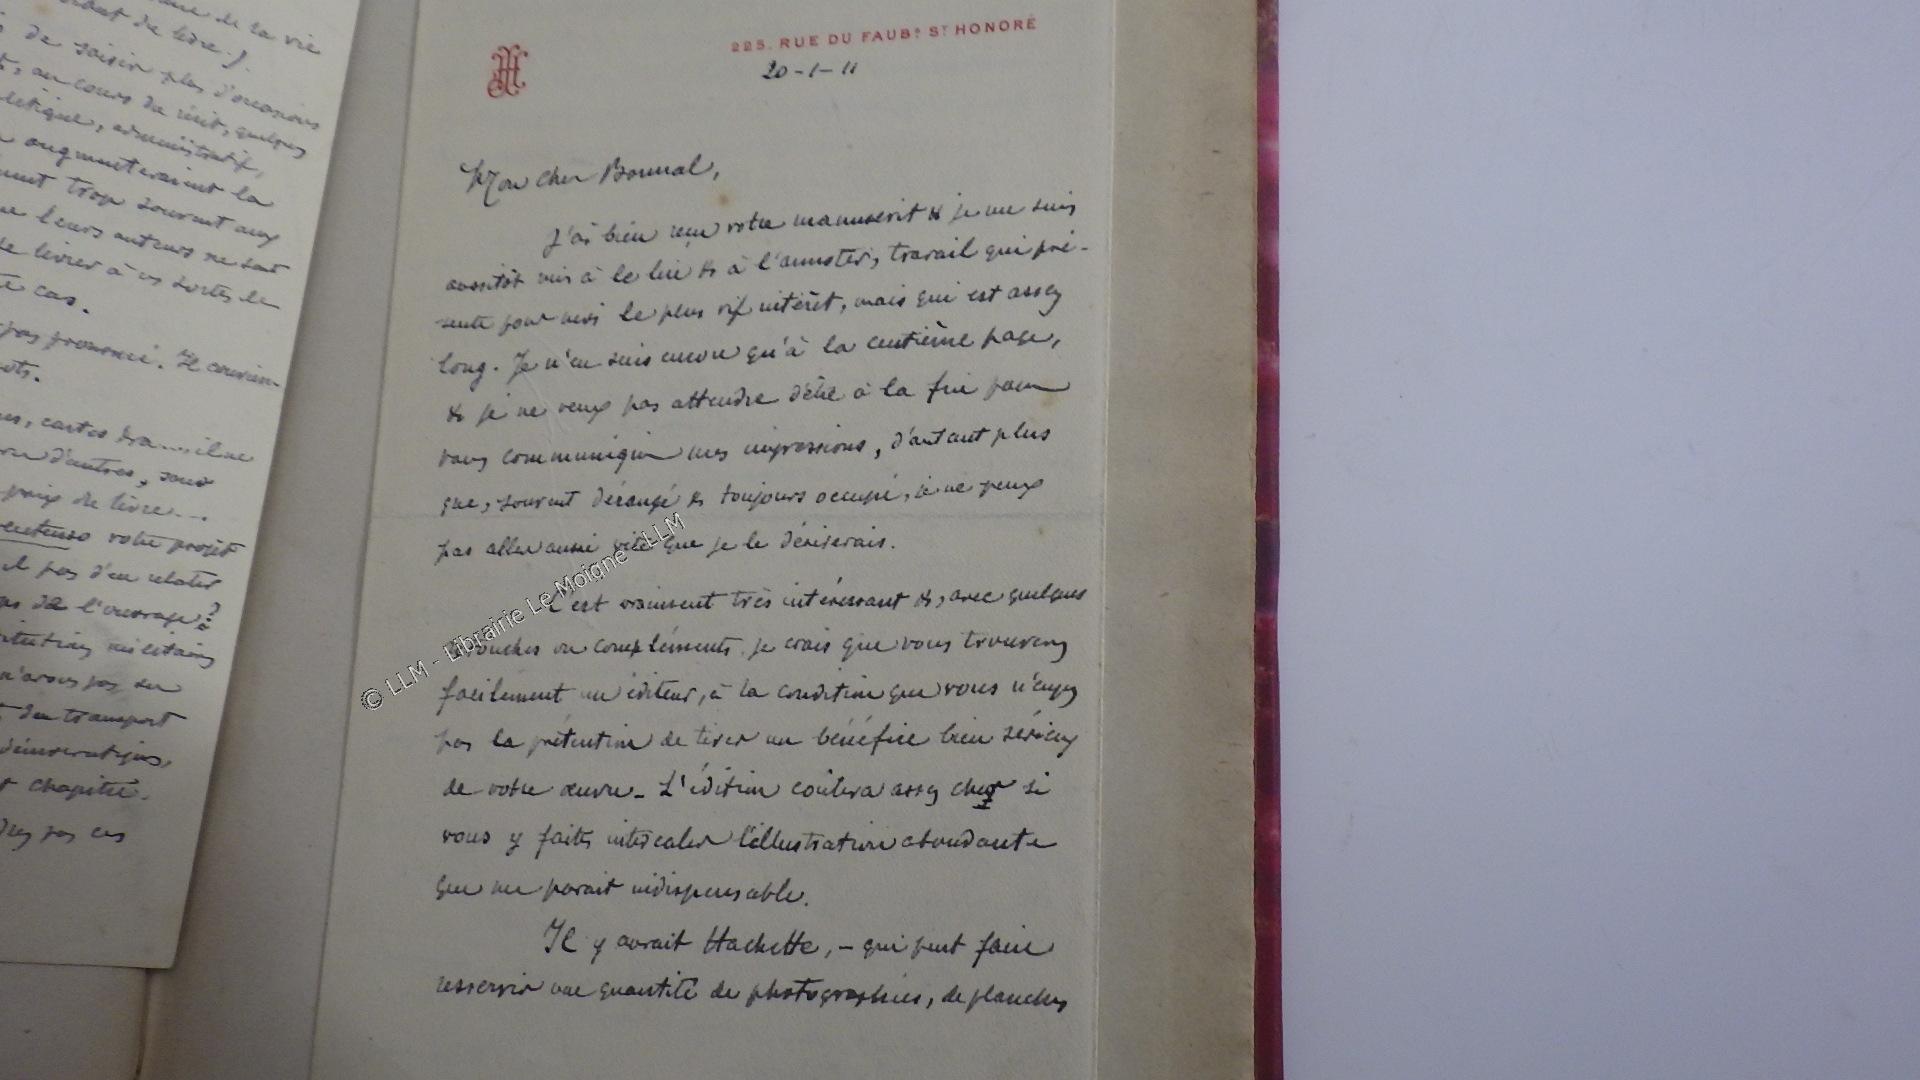 de la vie
de livre.)
de saisir plus d'occasions
au cours du récit, quelques
administratif,
augmenteraient la
trop souvent aux
leurs auteurs ne sont
livrer à ces sortes de
cas.
pas prononcé. Il convien-
cartes &a.... il ne
d'autres, sous
prix du livre....
votre projet
pas d'en relater
de l'ouvrage ?
militaires
n'avons pas su
du transport
chapitre.
pas ces
225, RUE DU FAUBG ST HONORÉ
20-1-11
Mon cher Bonnal,
J'ai bien reçu votre manuscrit & je me suis
aussitôt mis à le lire & à l'annoter, travail qui pré-
sente pour moi le plus vif intérêt, mais qui est assez
long. Je n'en suis encore qu'à la centième page,
& je ne veux pas attendre d'être à la fin pour
vous communiquer mes impressions, d'autant plus
que, souvent dérangé & toujours occupé, je ne peux
pas aller aussi vite que je le désirerais.
C'est vraiment très intéressant &, avec quelques
retouches ou compléments, je crois que vous trouverez
facilement un éditeur, à la condition que vous n'ayez
pas la prétention de tirer un bénéfice bien sérieux
de votre œuvre. L'édition coûtera assez cher si
vous y faites intercaler l'illustration abondante
qui me parait indispensable.
Il y aurait Hachette, - qui peut faire
resservir une quantité de photographies, de planches
© LLM - Librairie Le Moigne - LLM